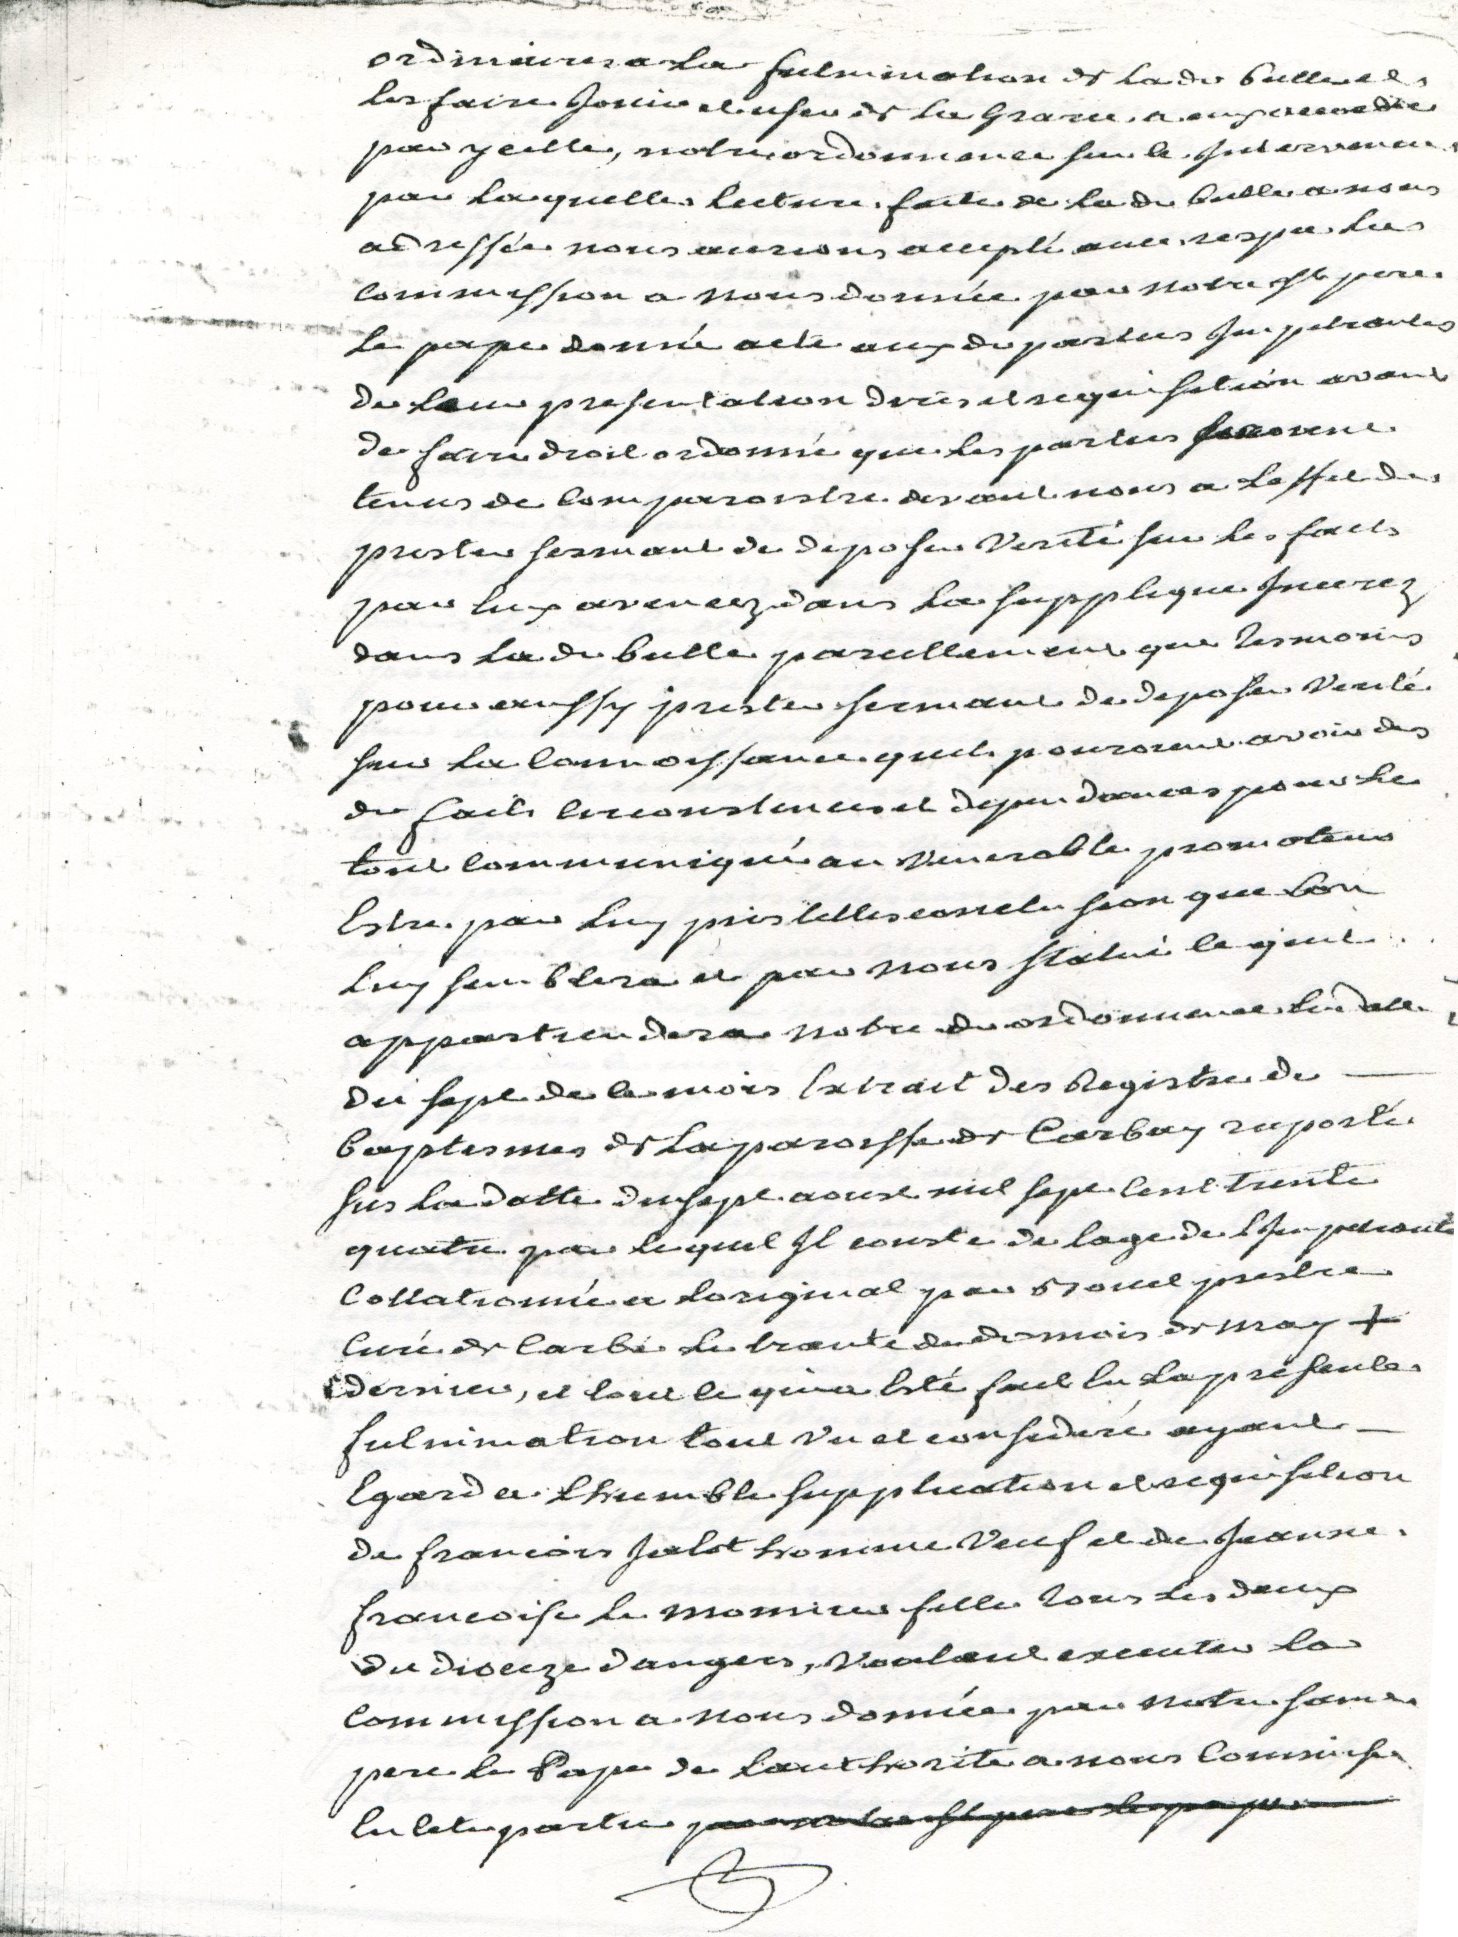 ordinaires a la fulmination de la de bulle et
les faire jouir et user de la grace a eux accordée
par ycelle, notre ordonnance sur ce intervenue
par laquelle lecture faite de la de bulle a nous
adressée nous aurions accepté avec respec la
commission a nous donnée par notre st pere
le pape donné acte aux de parties Impetrantes
de leur presentation dires et requisition avant
de faire droit ordonné que les parties seroient
tenus de comparoistre devant nous a leffet de
prester sermant de deposer verité sur les faits
par eux avencez dans la supplique Incerez
dans la de bulle pareillement que tesmoins
pour aussy prester sermant de deposer verité
sur la connoissance quils pouroient avoir des
de faits circonstences et dependances pour le
tout communiqué au venerable promoteur
Estre par luy pris telles conclusion que bon
luy semblera et par nous statué ce quil
appartiendera notre de ordonnance en datte
du sept de ce mois Extrait des Registre de
baptesmes de la paroisse de Carbay raporté
sus la datte du sept aoust mil sept cent trente
quatre par lequel Il conste de lage de l'Impetrante
Collationné a loriginal par prestre
curé de Carbé le trante du de mois de may +
dernier, et tout ce qui a Esté fait en la presente
fulmination tout vu et consideré ayant
Egard a lhumble supplication et requisition
de francois Jalot homme veuf et de Jeanne
francoise le monnier fille tous les deux
du dioceze dangers, voulant executer la
commission a nous donnée par notre saint
pere le Pape de lauthorité a nous commise
en cete partie par notre st pere le pape